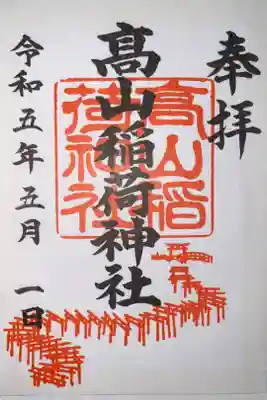 奉拝
髙山稲荷神社
髙山稻荷神社
令和五年五月 一日